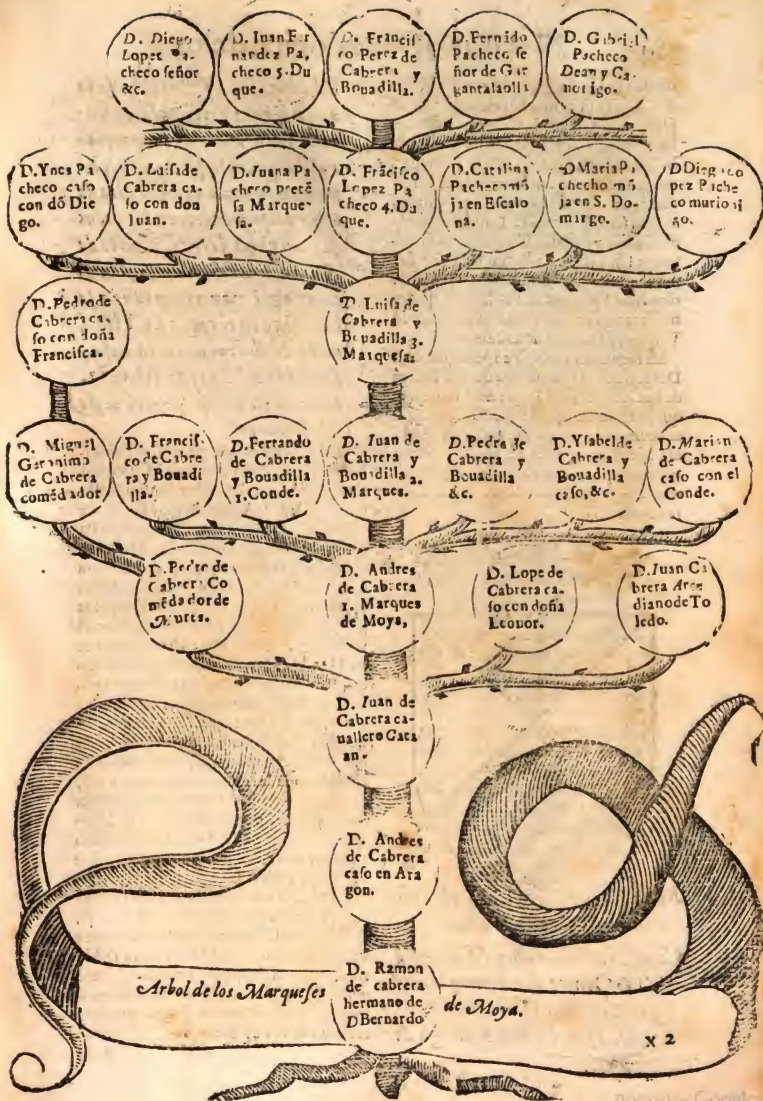 D. Diego
Lopez Pa-
checo señor
&c.
D. Iuan Fer
nandez Pa,
checo 5. Du
que.
D. Francis-
co Perez de
Cabrera y
Bouadilla.
D. Fernãdo
Pacheco se
ñor de Gar
gantalaolla
D. Gabriel
Pacheco
Dean y Ca-
nonigo.
D. Ynes Pa
checo caso
con dõ Die
go.
D. Luisa de
Cabrera ca-
so con don
Iuan.
D. Iuana Pa
checo pretẽ
sa Marque-
sa.
D. Frãcisco
Lopez Pa
checo 4. Du
que.
D. Catalina
Pacheco mõ
ja en Escalo
na.
D Maria Pa
checho mõ
ja en S. Do-
mingo.
D Diego Lo
pez Pache
co murio ni
ño.
D. Pedro de
Cabrera ca,
so con doña
Francisca.
D. Luisa de
Cabrera y
Bouadilla 3.
Marquesa.
D. Miguel
Geronimo
de Cabrera
comẽdador
D. Francis-
co de Cabre
ra y Bouadi
lla.
D. Fernando
de Cabrera
y Bouadilla
1. Conde.
D. Iuan de
Cabrera y
Bouadilla 2.
Marques.
D. Pedro de
Cabrera y
Bouadilla
&c.
D. Ysabel de
Cabrera y
Bouadilla
caso, &c.
D. Maria
de Cabrera
caso con el
Conde.
D. Pedro de
Cabrera Co
mẽdador de
D. Andres
de Cabrera
1. Marques
de Moya,
D. Lope de
Cabrera ca-
so con doña
Leonor.
D. Iuan Ca
brera Arce
diano de To
ledo.
D. Iuan de
Cabrera ca-
uallero Cata
an.
D. Andres
de Cabrera
caso en Ara
gon.
D. Ramon
de cabrera
hermano de
D Bernardo
Arbol de los Marqueses de Moya.
X 2